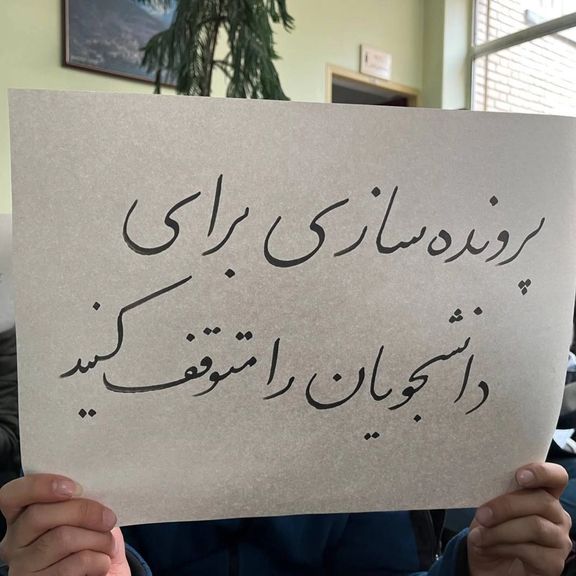 پرونده‌سازی برای
دانشجویان را متوقف کنید